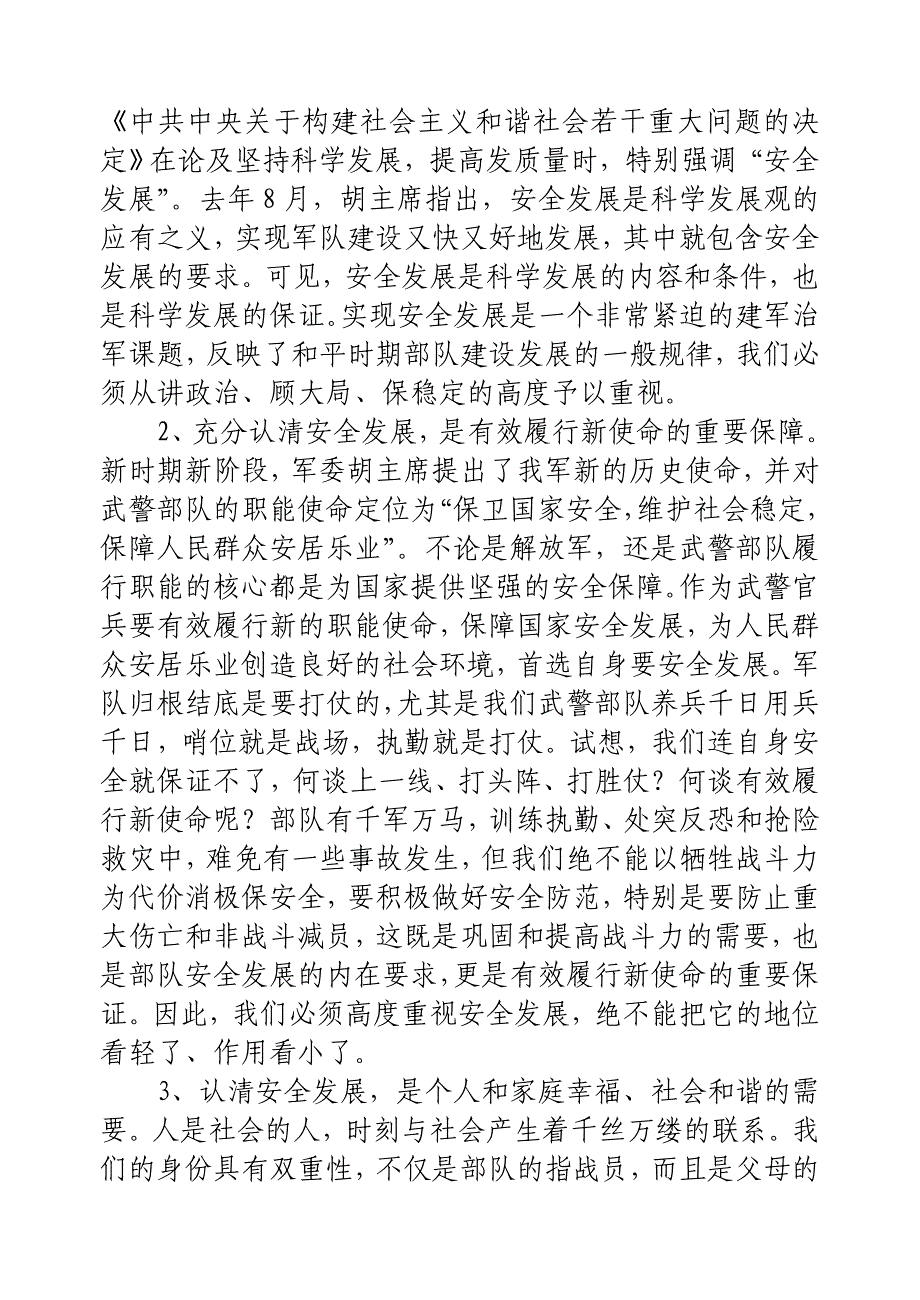 《中共中央关于构建社会主义和谐社会若干重大问题的决
定》在论及坚持科学发展，提高发质量时，特别强调“安全
发展”。去年 8 月，胡主席指出，安全发展是科学发展观的
应有之义，实现军队建设又快又好地发展，其中就包含安全
发展的要求。可见，安全发展是科学发展的内容和条件，也
是科学发展的保证。实现安全发展是一个非常紧迫的建军治
军课题，反映了和平时期部队建设发展的一般规律，我们必
须从讲政治、顾大局、保稳定的高度予以重视。
2、充分认清安全发展，是有效履行新使命的重要保障。
新时期新阶段，军委胡主席提出了我军新的历史使命，并对
武警部队的职能使命定位为“保卫国家安全，维护社会稳定，
保障人民群众安居乐业”。不论是解放军，还是武警部队履
行职能的核心都是为国家提供坚强的安全保障。作为武警官
兵要有效履行新的职能使命，保障国家安全发展，为人民群
众安居乐业创造良好的社会环境，首选自身要安全发展。军
队归根结底是要打仗的，尤其是我们武警部队养兵千日用兵
千日，哨位就是战场，执勤就是打仗。试想，我们连自身安
全就保证不了，何谈上一线、打头阵、打胜仗？何谈有效履
行新使命呢？部队有千军万马，训练执勤、处突反恐和抢险
救灾中，难免有一些事故发生，但我们绝不能以牺牲战斗力
为代价消极保安全，要积极做好安全防范，特别是要防止重
大伤亡和非战斗减员，这既是巩固和提高战斗力的需要，也
是部队安全发展的内在要求，更是有效履行新使命的重要保
证。因此，我们必须高度重视安全发展，绝不能把它的地位
看轻了、作用看小了。
3、认清安全发展，是个人和家庭幸福、社会和谐的需
要。人是社会的人，时刻与社会产生着千丝万缕的联系。我
们的身份具有双重性，不仅是部队的指战员，而且是父母的